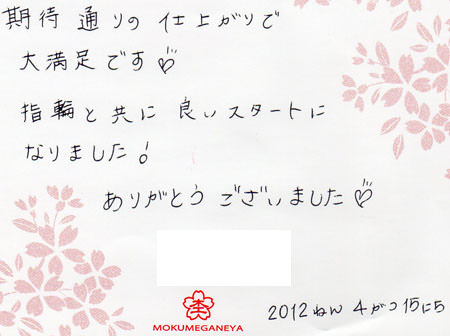 期待通りの仕上がりで
大満足です♡
指輪と共に良いスタートに
なりました!
ありがとうございました♡
MOKUMEGANEYA
2012ねん4がつ15にち